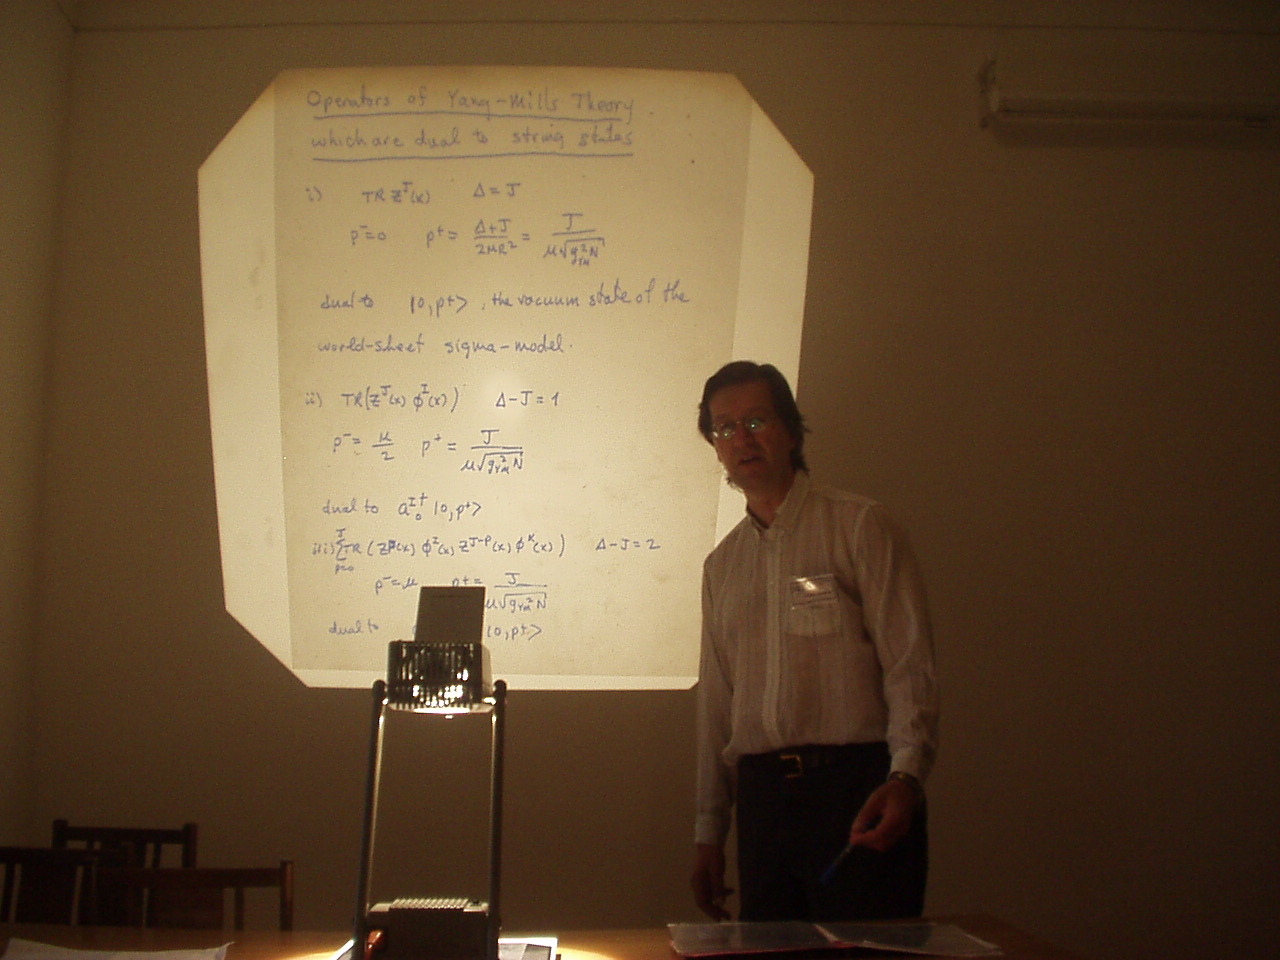 Operators of Yang-Mills Theory
which are dual to string states
i) TR Z^J(x) Δ = J
p^- = 0 p^+ = (Δ+J)/(2μR^2) = J/(μ√(g_YM^2 N))
dual to |0,p^+>, the vacuum state of the
world-sheet sigma-model.
ii) TR(Z^J(x) φ^I(x)) Δ-J = 1
p^- = μ/2 p^+ = J/(μ√(g_YM^2 N))
dual to a_0^{I†} |0,p^+>
iii) Σ_{p=0}^J TR (Z^p(x) φ^I(x) Z^{J-p}(x) φ^K(x)) Δ-J = 2
p^- = μ p^+ = J/(μ√(g_YM^2 N))
dual to |0,p^+>